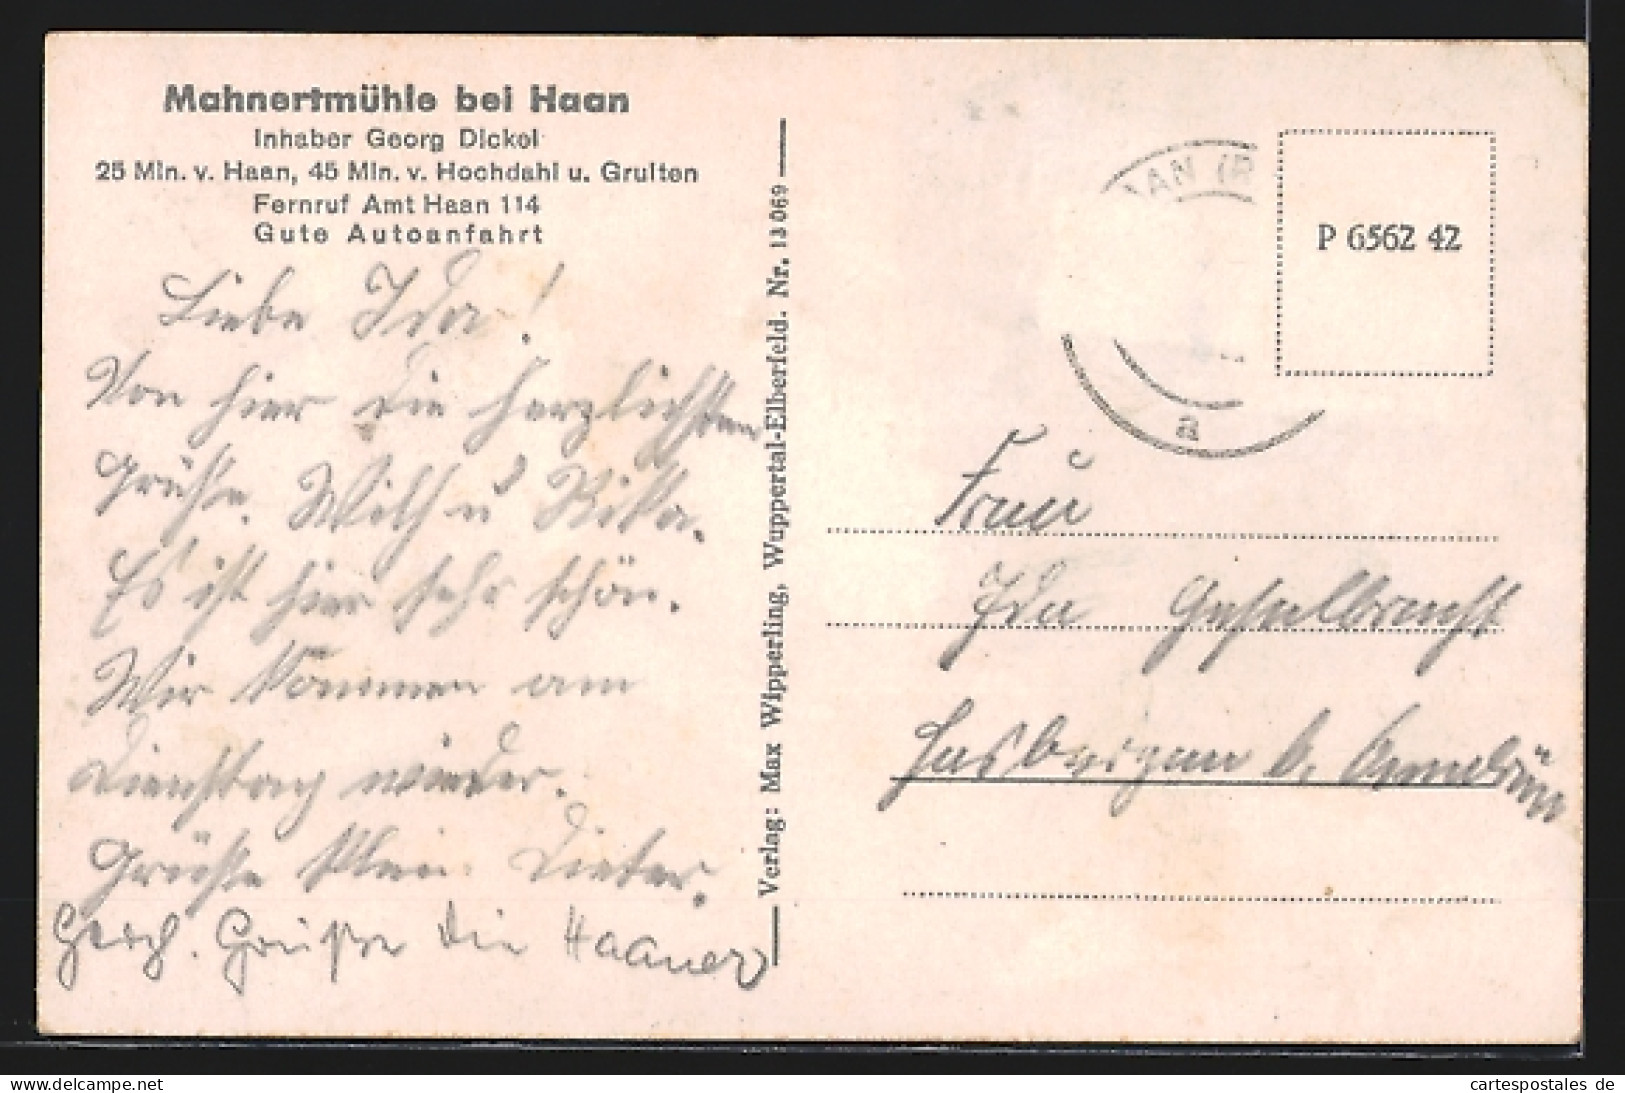 Mahnertmühle bei Haan
Inhaber Georg Dickel
25 Min. v. Haan, 45 Min. v. Hochdahl u. Gruiten
Fernruf Amt Haan 114
Gute Autoanfahrt
Liebe Ida!
Von hier die herzlichsten
Grüße. Willy u
Es ist hier sehr schön.
Wir kommen am
Dienstag wieder.
Grüße Klein Dieter.
Herzl. Grüße die Haaner
Verlag: Max Wipperling, Wuppertal-Elberfeld. Nr. 13069
AAN (R
a
P 6562 42
Frau
Ida
b.
www.delcampe.net
cartespostales de